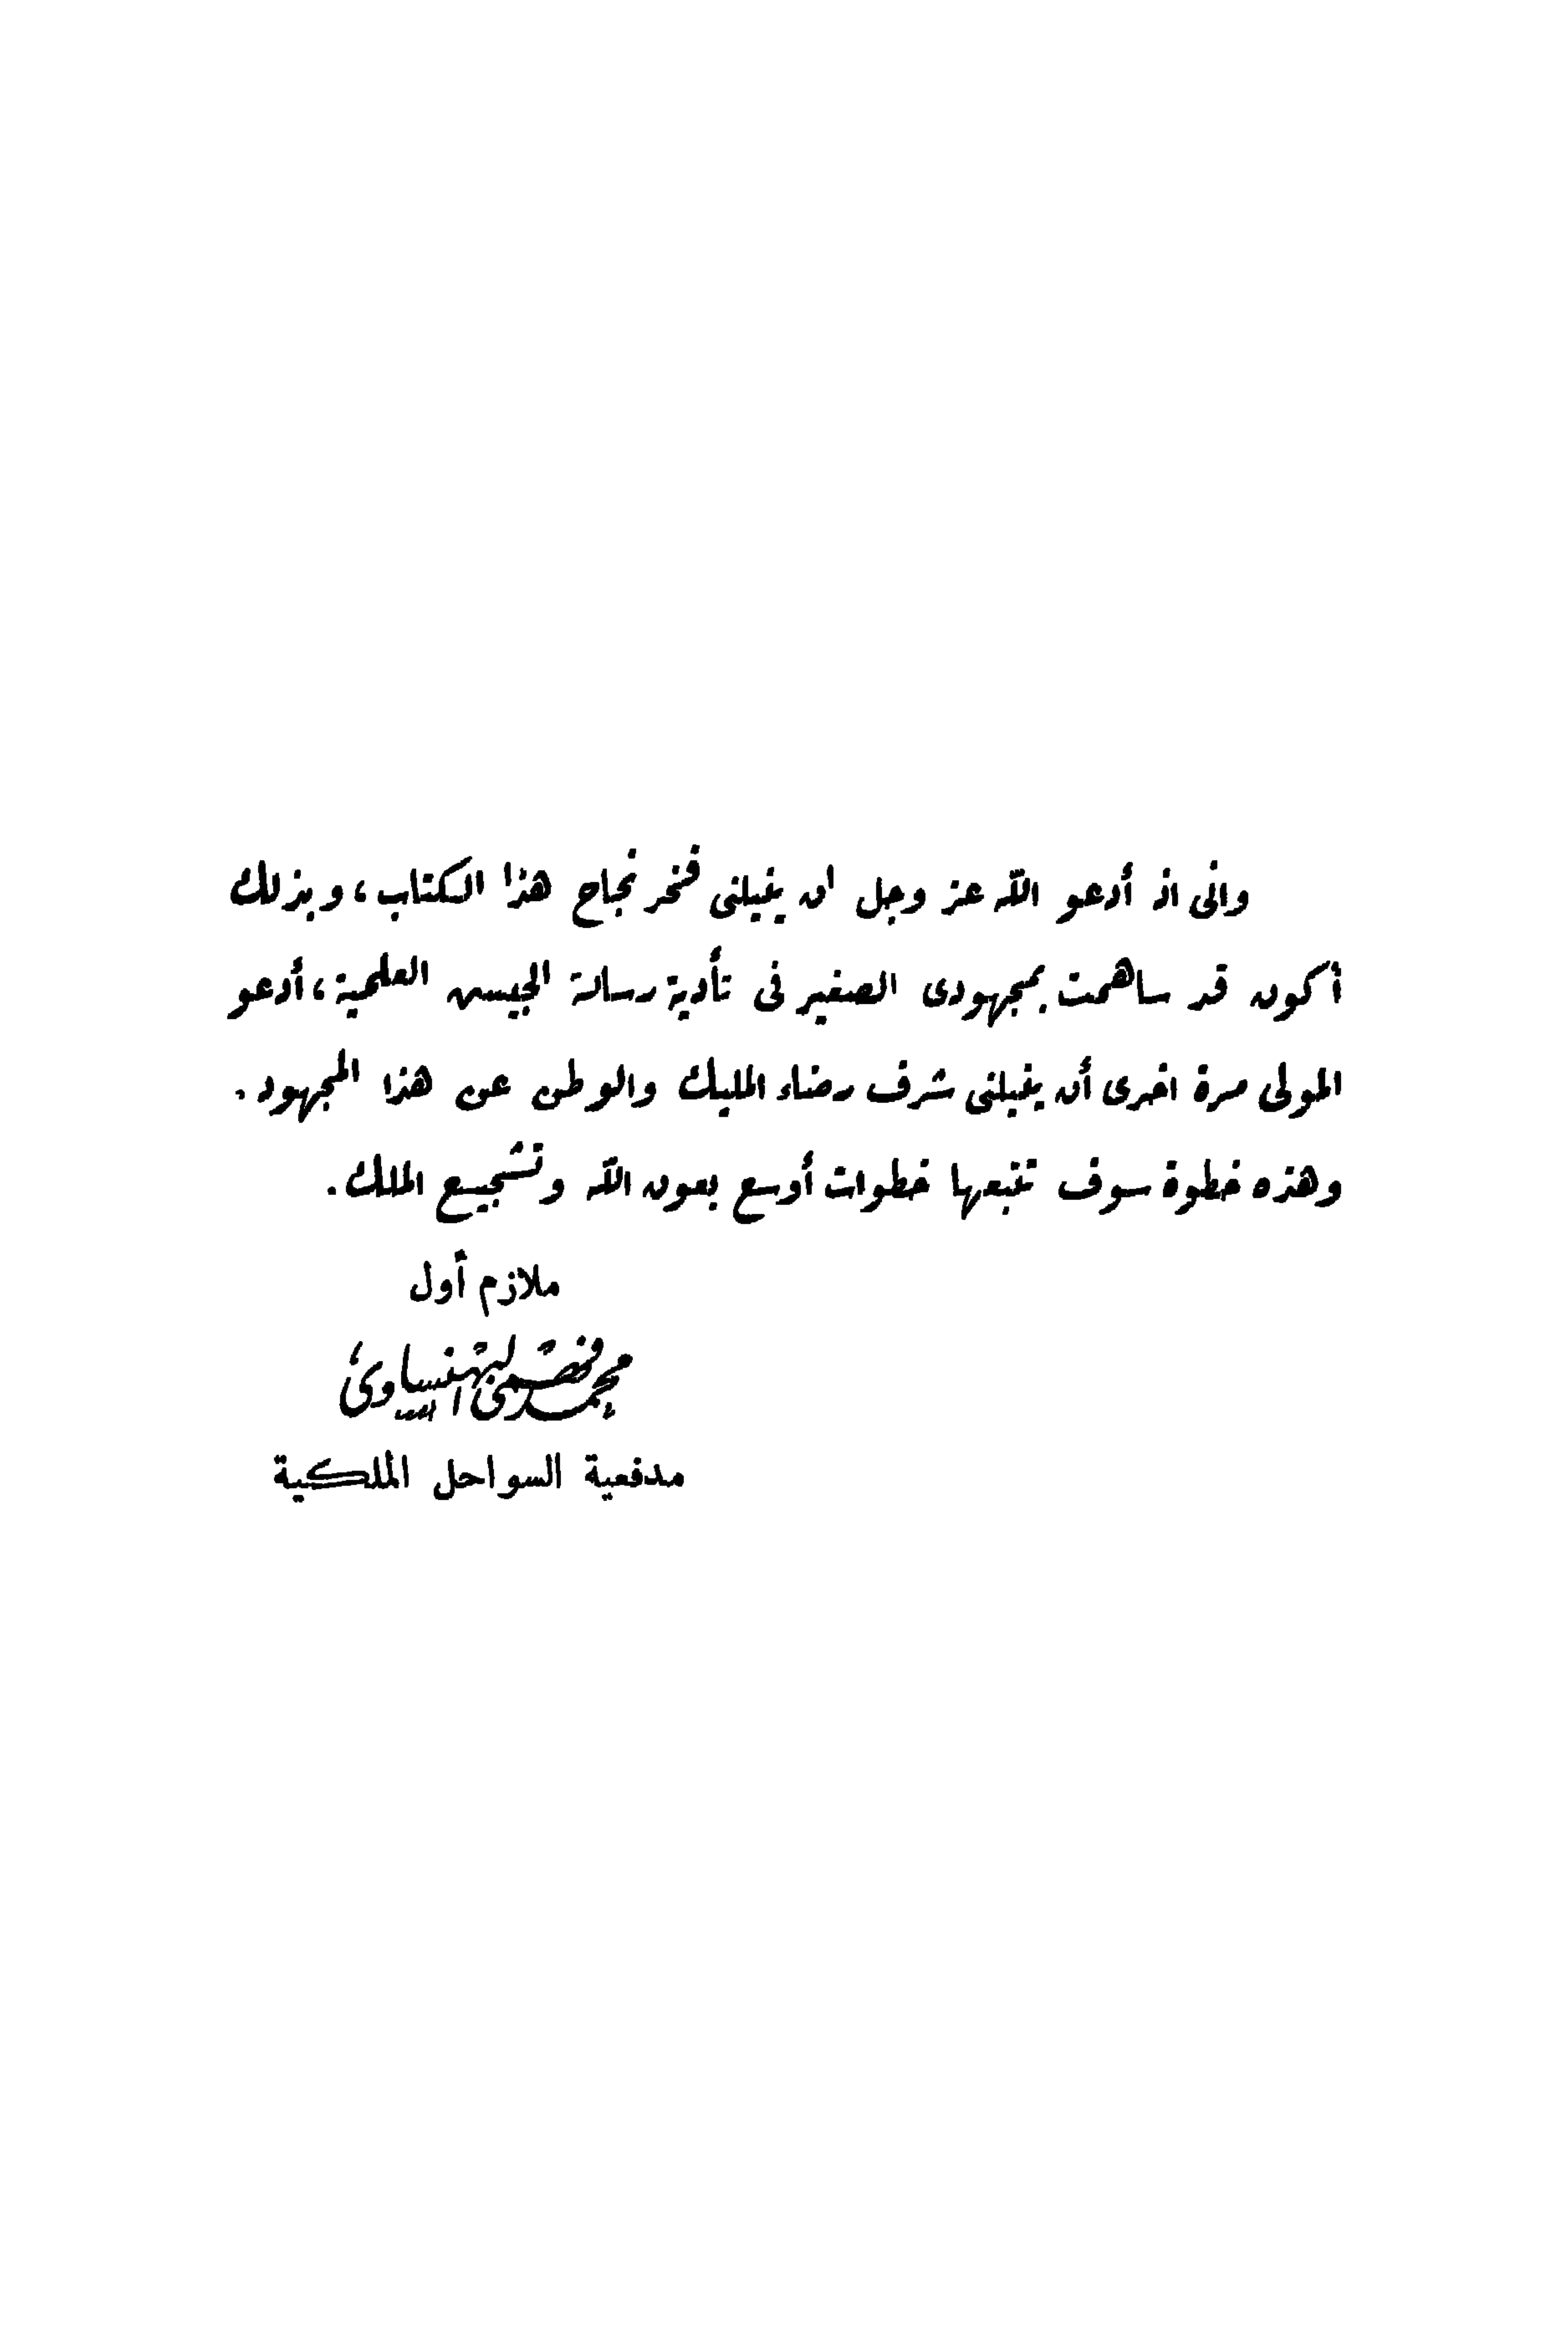 وانى اذ أدعو الله عز وجل ان ينيلنى فخر نجاح هذا الكتاب، وبذلك
أكون قد ساهمت بمجهودى الصغير فى تأدية رسالة الجيش العلمية، أدعو
المولى مرة اخرى أن ينيلنى شرف رضاء المليك والوطن عن هذا المجهود.
وهذه خطوة سوف تتبعها خطوات أوسع بعون الله وتشجيع الملك.
ملازم أول
محمد فتحى البهنساوى
مدفعية السواحل الملكية